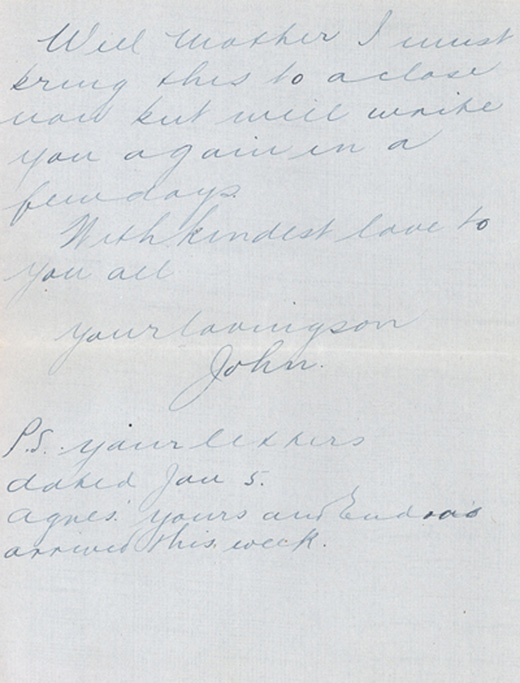 Well Mother I must
bring this to a close
now but will write
you again in a
few days.
With kindest love to
you all
your loving son
John.
P.S. your letters
dated Jan 5.
Agnes. yours and
arrived this week.